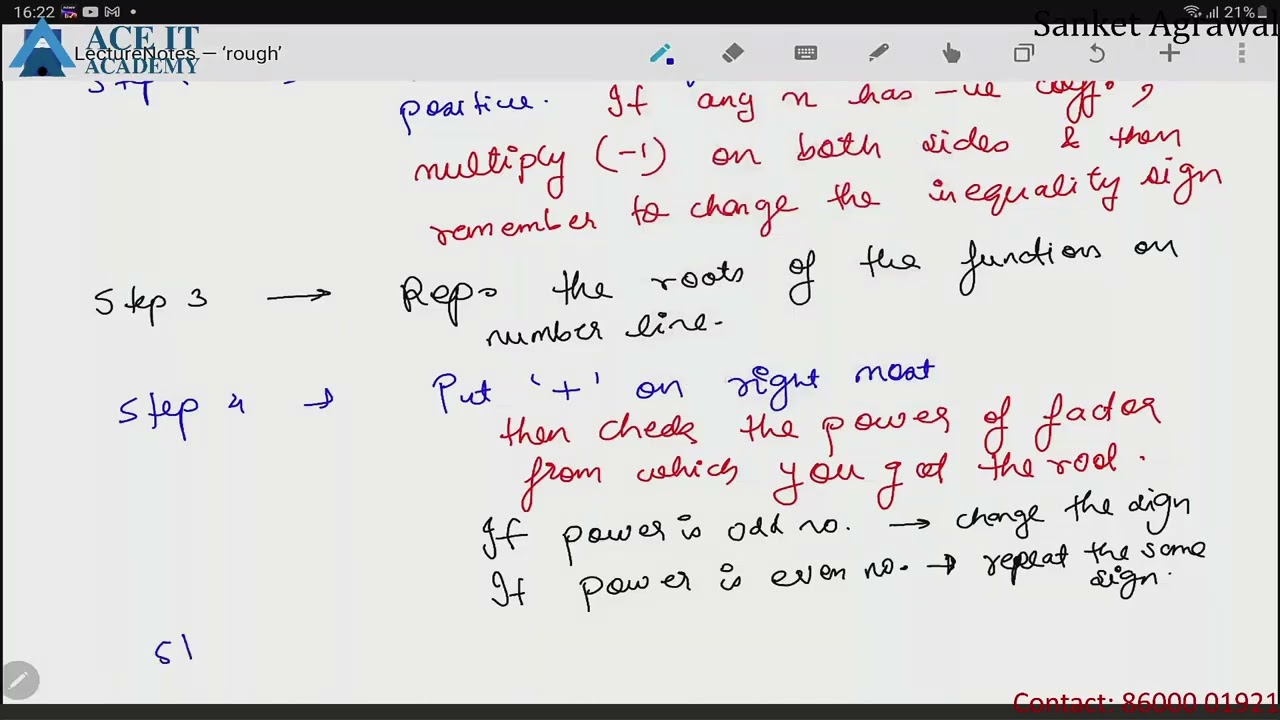 16:22
21%
Sanket Agrawal
ACE IT
ACADEMY
LectureNotes — ‘rough’
positive. If any x has -ve coeff. ,
multiply (-1) on both sides & then
remember to change the inequality sign
Step 3 → Rep. the roots of the function on
number line.
Step 4 → Put '+' on right most
then check the power of factor
from which you got the root.
If power is odd no. → change the sign
If power is even no. → repeat the same
sign.
St
Contact: 86000 01921